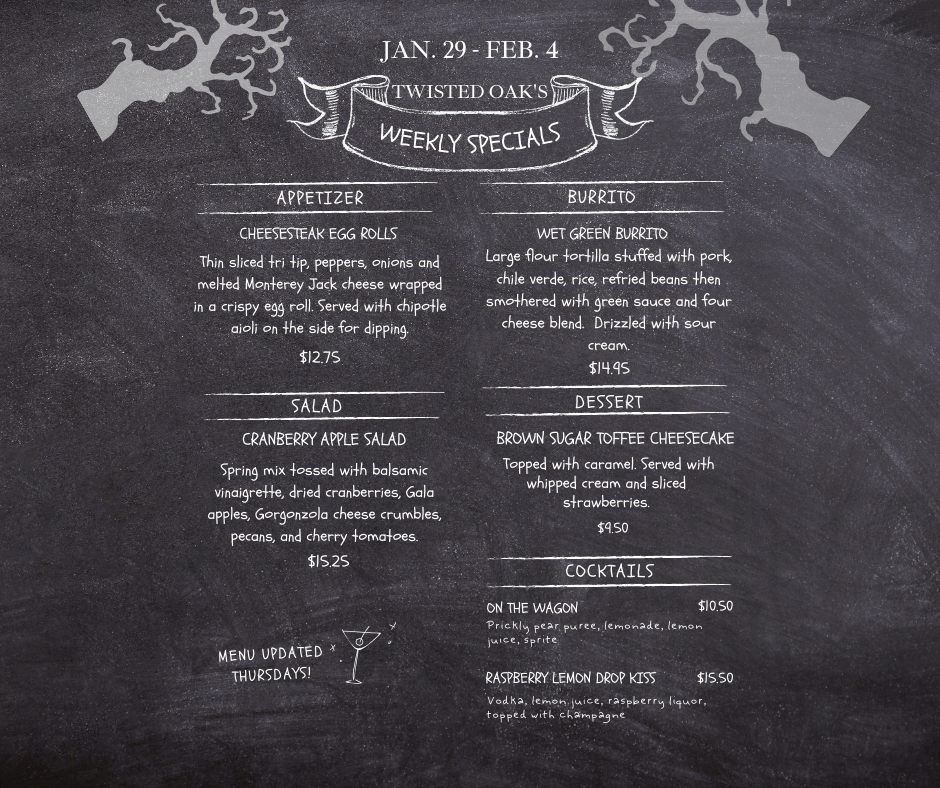 JAN. 29 - FEB. 4
TWISTED OAK'S
WEEKLY SPECIALS
APPETIZER
CHEESESTEAK EGG ROLLS
Thin sliced tri tip, peppers, onions and
melted Monterey Jack cheese wrapped
in a crispy egg roll. Served with chipotle
aioli on the side for dipping.
$12.75
SALAD
CRANBERRY APPLE SALAD
Spring mix tossed with balsamic
vinaigrette, dried cranberries, Gala
apples, Gorgonzola cheese crumbles,
pecans, and cherry tomatoes.
$15.25
MENU UPDATED
THURSDAYS!
BURRITO
WET GREEN BURRITO
Large flour tortilla stuffed with pork,
chile verde, rice, refried beans then
smothered with green sauce and four
cheese blend. Drizzled with sour
cream.
$14.95
DESSERT
BROWN SUGAR TOFFEE CHEESECAKE
Topped with caramel. Served with
whipped cream and sliced
strawberries.
$9.50
COCKTAILS
ON THE WAGON $10.50
Prickly pear puree, lemonade, lemon
juice, sprite
RASPBERRY LEMON DROP KISS $15.50
Vodka, lemon juice, raspberry liquor,
topped with champagne